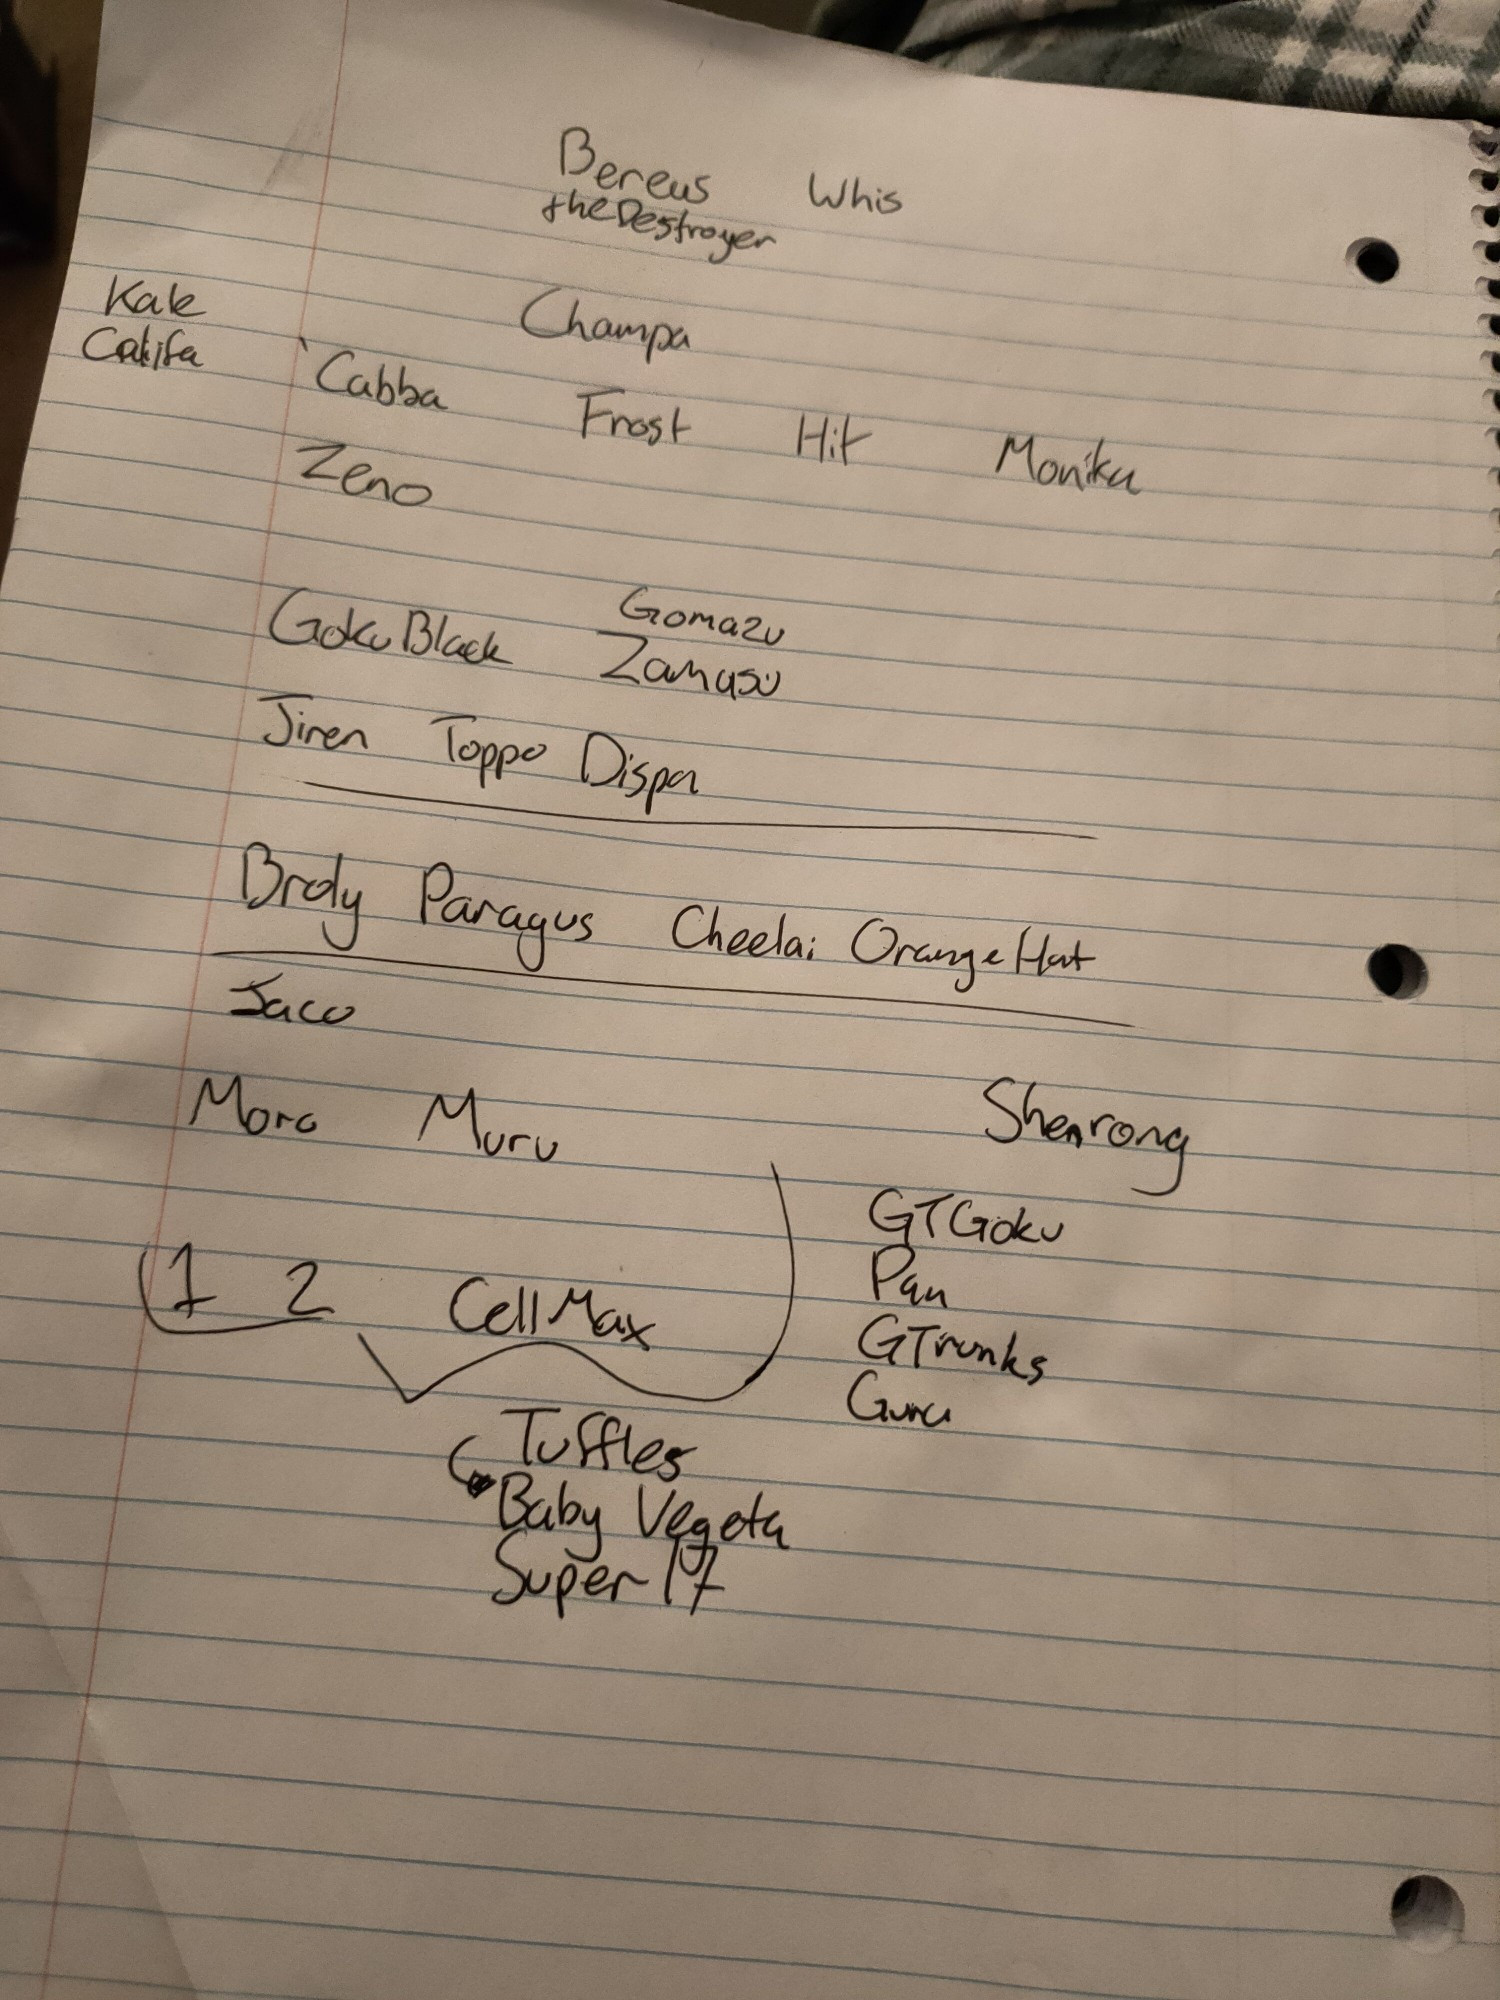 Bereus Whis
the Destroyer
Kale Champa
Calita Cabba Frost Hit Monika
Zeno
Goku Black Gomazu
Zamasu
Jiren Toppo Dispa
Broly Paragus Cheelai Orange Hat
Jaco
Moro Muru Shenrong
GT Goku
1 2 Cell Max Pan
GTrunks
Guru
Tuffles
Baby Vegeta
Super 17